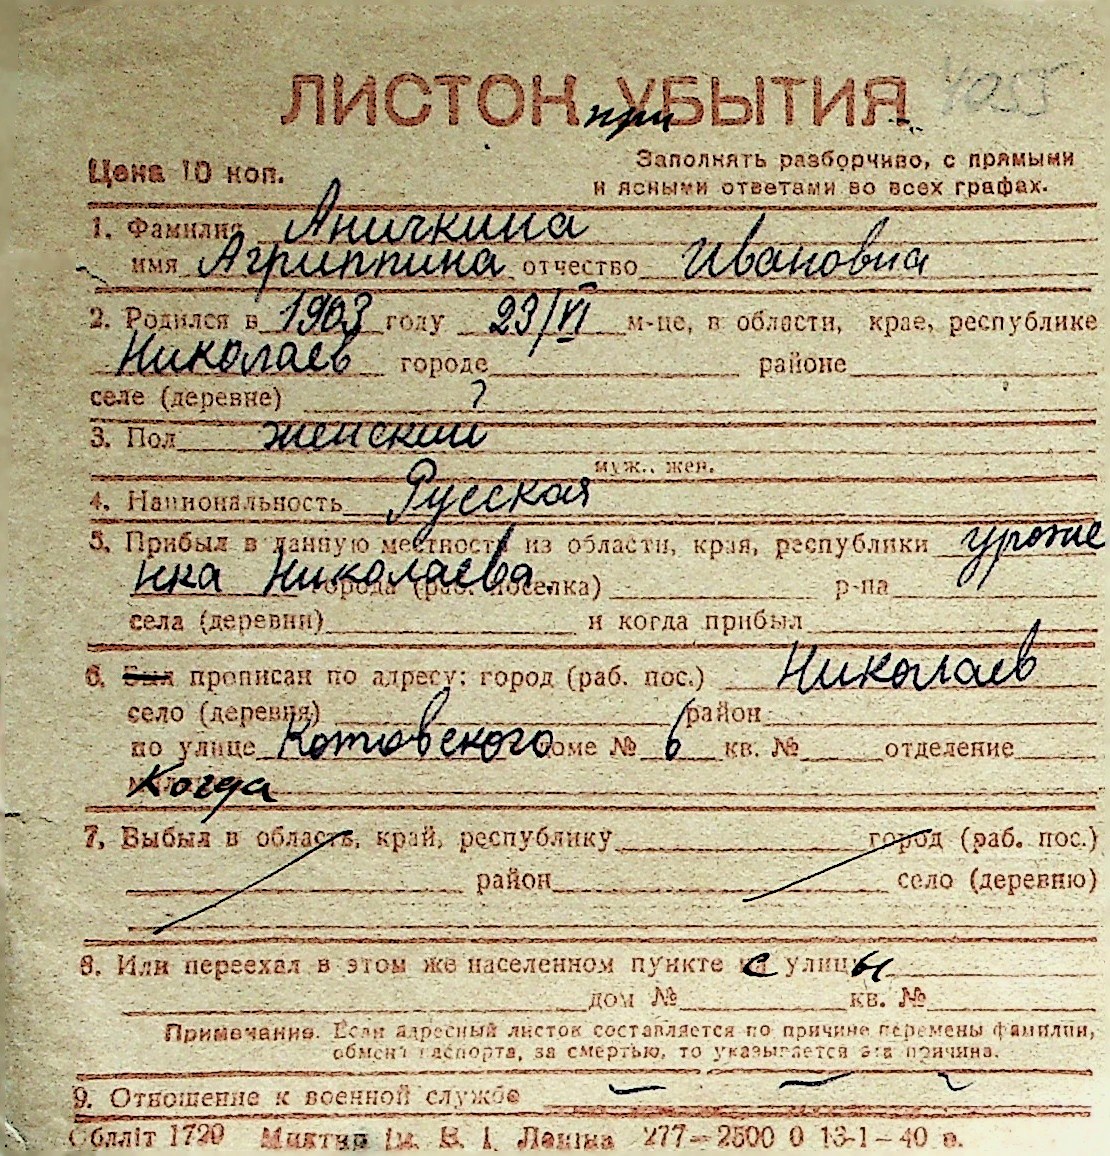 ЛИСТОК при УБЫТИЯ 4055
Цена 10 коп. Заполнять разборчиво, с прямыми
и ясными ответами во всех графах.
1. Фамилия Аничкина
имя Агриппина отчество Ивановна
2. Родился в 1903 году 23/VI м-це, в области, крае, республике
Николаев городе районе
селе (деревне) ?
3. Пол женский
муж., жен.
4. Национальность Русская
5. Прибыл в данную местность из области, края, республики уроже
нка Николаева города (раб. поселка) р-на
села (деревни) и когда прибыл
6. Был прописан по адресу: город (раб. пос.) Николаев
село (деревня) район
по улице Котовского доме № 6 кв. № отделение
Когда
7. Выбыл в область, край, республику город (раб. пос.)
район село (деревню)
8. Или переехал в этом же населенном пункте с улицы
дом № кв. №
Примечание. Если адресный листок составляется по причине перемены фамилии,
обмена паспорта, за смертью, то указывается эта причина.
9. Отношение к военной службе
Облліт 1720 Миктип ім. В. І. Леніна 277—2500 0 13-1—40 в.